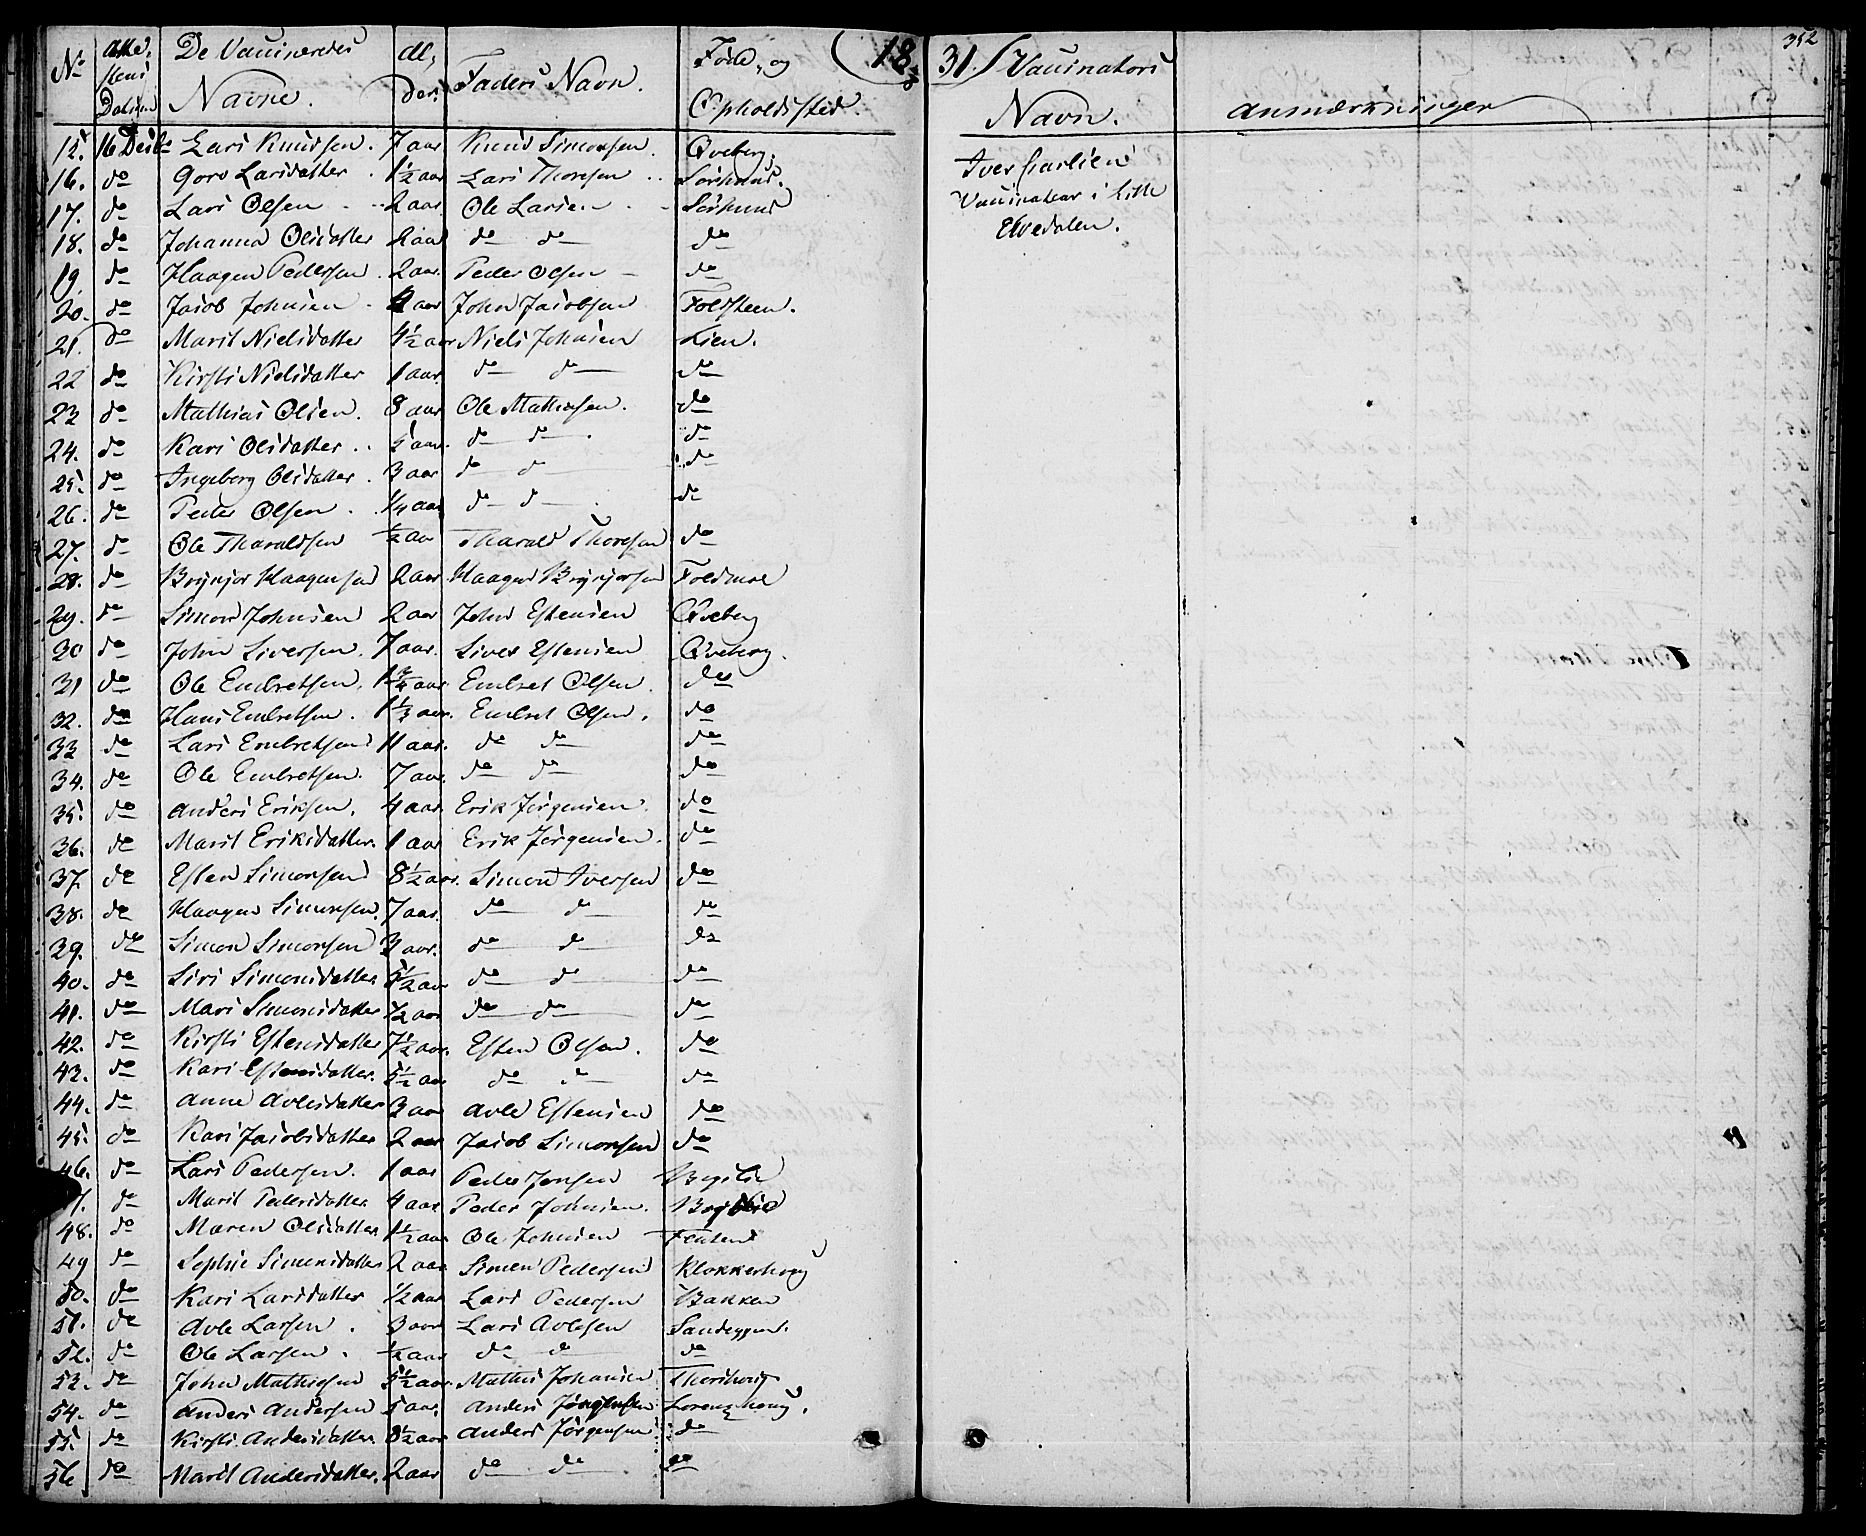 No Atte- De Vaccineredes Al- Faders Navn. Føde- og 1831. Vaccinators 352
stens
Datum Navne. der. Opholdssted. Navn. Anmærkninger
15. 16 Decbr Lars Knudsen. 7 aar Knud Simonsen. Qveberg. Iver Carlsen
16. do Goro Larsdatter. 1½ aar Lars Thoresen Sørhuus. Vaccinateur i Lille
17. do Lars Olsen 2 aar Ole Larsen Sørhuus Elvedalen.
18. do Johanna Olsdatter 2 aar do do do
19. do Haagen Pedersen. 2 aar. Peder Olsen do
20. do Jacob Johnsen aar John Jacobsen Foldsteen.
21. do Marit Nielsdatter 4½ aar Niels Johnsen Lien.
22 do Kirsti Nielsdatter 1 aar. do do do
23 do Mathias Olsen. 8 aar Ole Mathiasen. do
24. do Kari Olsdatter.. 5 aar. do do do
25. do Ingeborg Olsdatter. 3 aar do do do
26. do Peder Olsen. ¼ aar do do do
27. do Ole Tharaldsen ½ aar Tharald Thoresen do
28. do Brynjor Haagensen 2 aar Haagen Brynjorsen Foldmoe
29. do Simon Johnsen 2 aar John Estensen Qveberg
30 do John Siversen. 7 aar. Siver Estensen Qveberg.
31 do Ole Embretsen. 1¾ aar Embret Olsen. do
32. do Hans Embretsen. 1⅓ aar. Embret Olsen. do
33 do Lars Embretsen 11 aar. do do do
34. do Ole Embretsen. 7 aar. do do do
35. do Anders Eriksen. 4 aar. Erik Jørgensen. do
36. do Marit Eriksdatter. 1 aar Erik Jørgensen. do
37. do Esten Simonsen 8½ aar. Simon Iversen do
38. do Haagen Simonsen. 7 aar. do do do
39. do Simon Simonsen 3 aar. do do do
40. do Siri Simonsdatter 5½ aar do do do
41. do Mari Simonsdatter ½ aar do do do
42. do Kirsti Estensdatter 7½ aar. Esten Olsen. do
43. do Kari Estensdatter. 5½ aar do do do
44. do Anne Avlesdatter 3 aar Avle Estensen do
45. do Kari Jacobsdatter 2 aar Jacob Simonsen do
46. do Lars Pedersen. 1 aar Peder Jonsen
7. do Marit Pedersdatter 4 aar Peder Johnsen.
48. do Maren Olsdatter 1½ aar Ole Johnsen
49 do Sophie Simensdatter 2 aar Simen Pedersen Klokkerhoug
50. do Kari Larsdatter ½ aar Lars Pedersen Bakken
51. do Avle Larsen. 3 aar Lars Avlesen Sandeggen.
52. do Ole Larsen. ½ aar do do do
53. do John Mathisen 5½ aar Mathis Johansen
54. do Anders Andersen 5 aar. Anders Jørgensen Lorenzhoug.
55. do Kirsti Andersdatter. 8½ aar Anders Jørgensen do
56 do Marit Andersdatter. 2 aar do do do